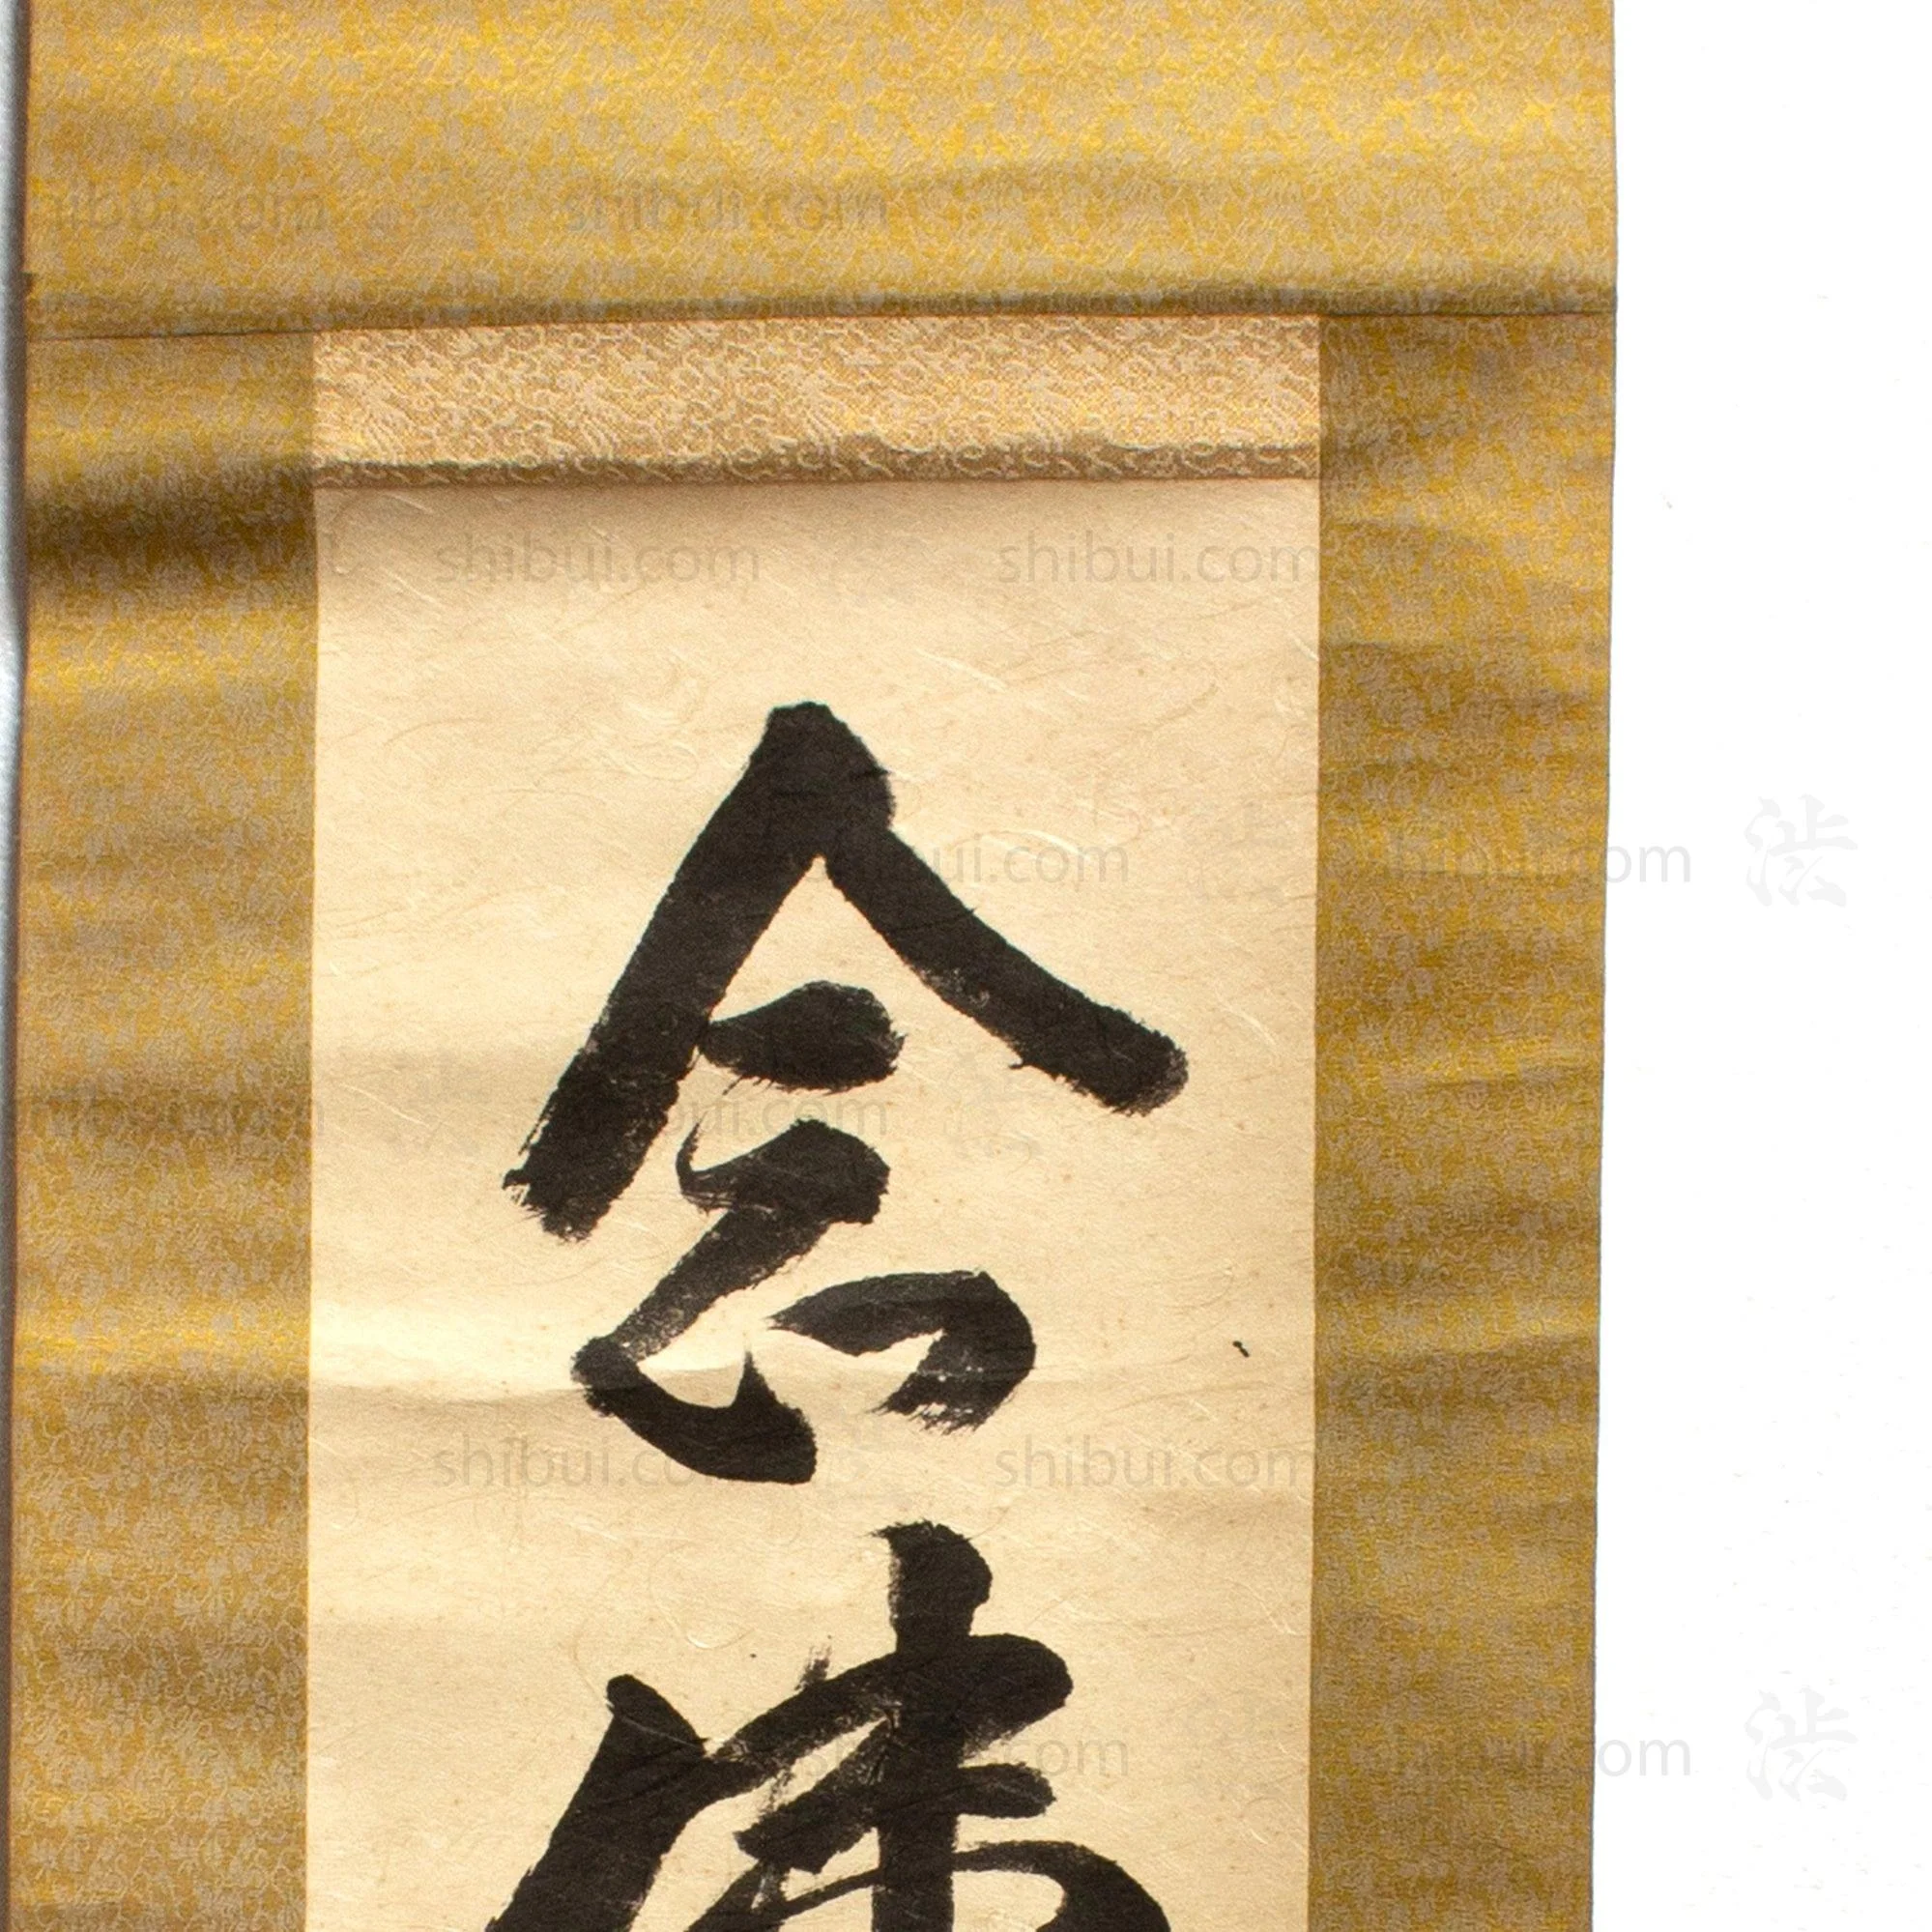 念
佛
shibui.com
shibui.com shibui.com
shibui.com shibui.com 渋
shibui.com
shibui.com shibui.com
shibui.com 渋